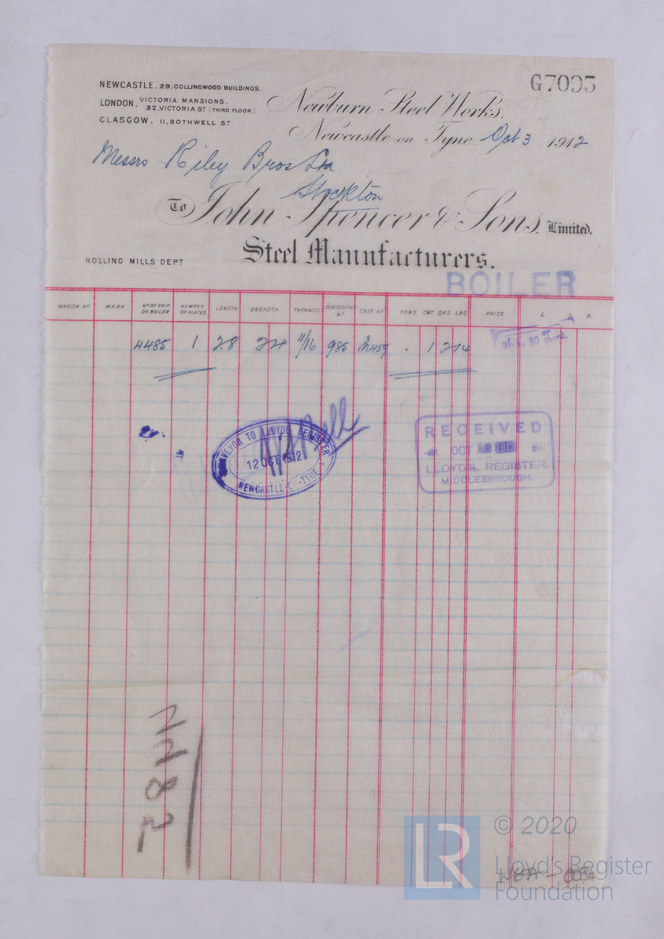 NEWCASTLE, 29, COLLINGWOOD BUILDINGS.
LONDON, VICTORIA MANSIONS, 32, VICTORIA ST (THIRD FLOOR)
GLASGOW, 11, BOTHWELL ST
G7095
Newburn Steel Works,
Newcastle on Tyne, Oct 3 1912
Messrs Riley Bros Ltd
Stockton
To John Spencer & Sons, Limited.
Steel Manufacturers.
ROLLING MILLS DEPT
BOILER
WAGON No MARK No OF SHIP OR BOILER NUMBER OF PLATES LENGTH BREADTH THICKNESS CONSECUTIVE No CAST No TONS. CWT. QRS. LBS PRICE. L. D.
4485 1 28 24 11/16 985
SURVEYOR TO LLOYDS REGISTER
12 OCT 1912
NEWCASTLE-ON-TYNE
RECEIVED
OCT
LLOYD'S REGISTER,
MIDDLESBROUGH
© 2020
LR
Lloyd's Register
Foundation